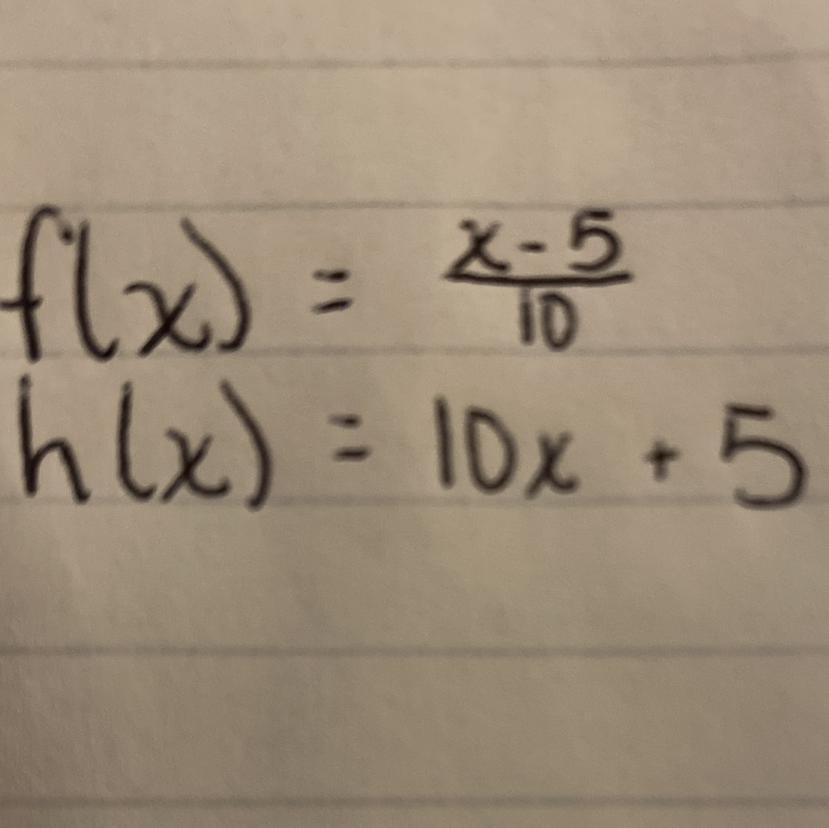 f(x) = x - 5 / 10
h(x) = 10x + 5